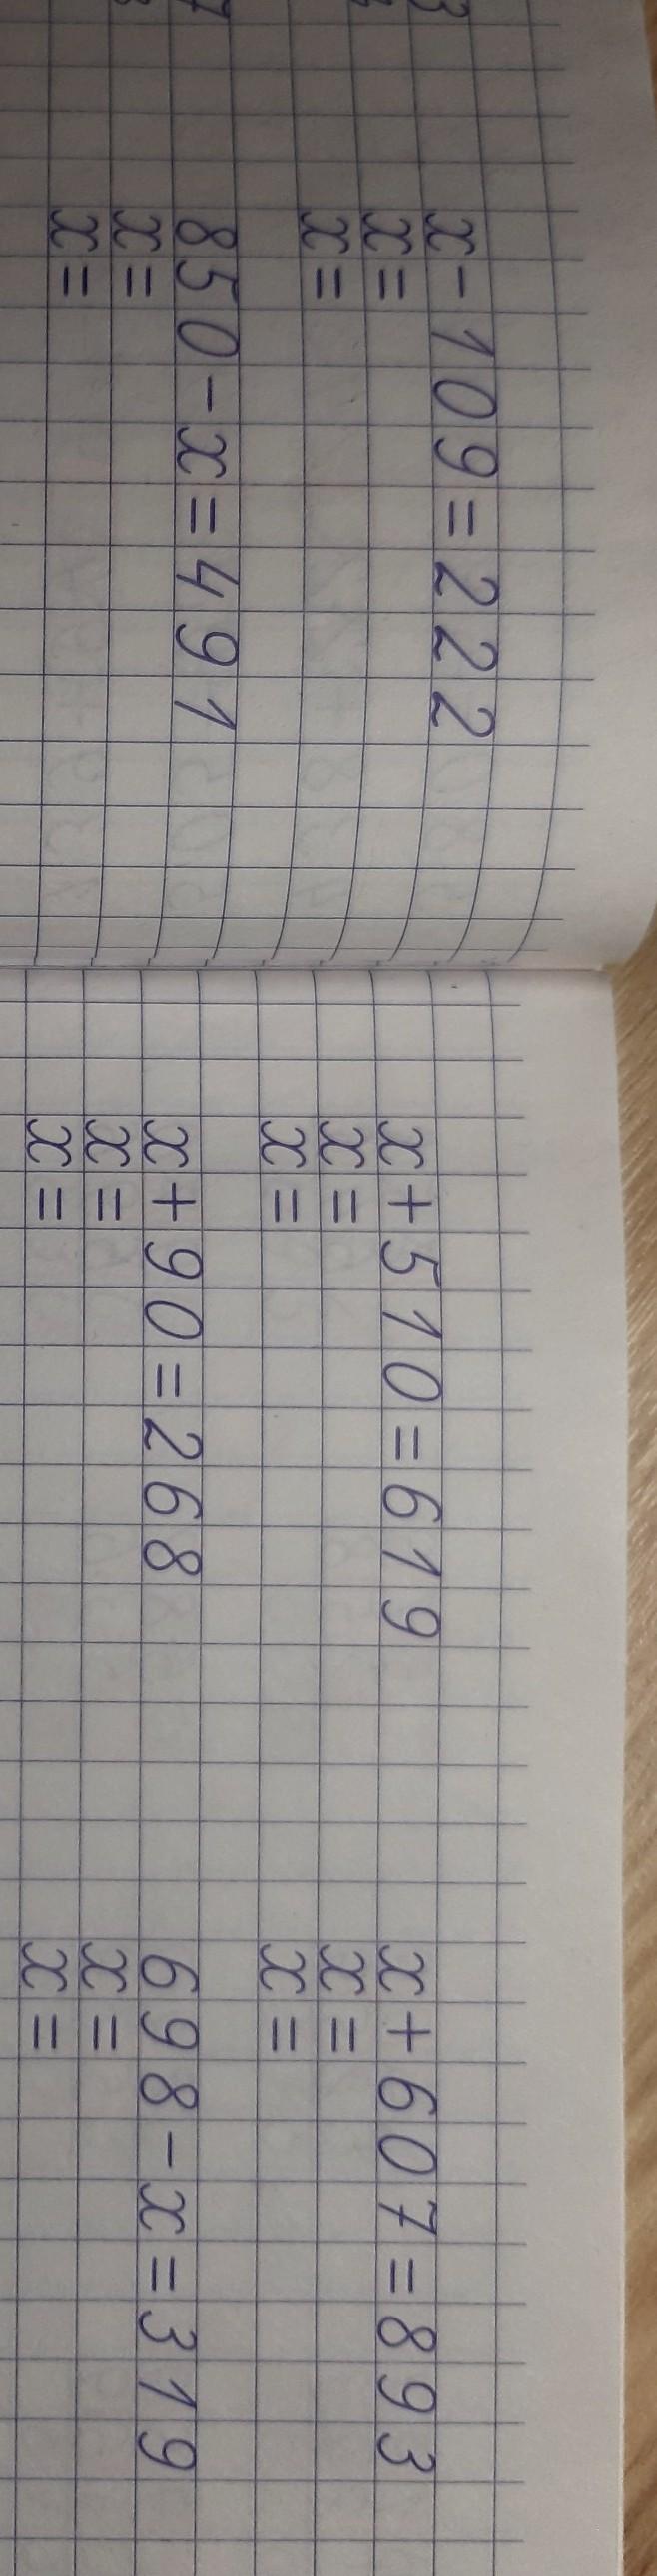 x-109=222
x=
x=
850-x=491
x=
x=
x+510=619
x=
x=
x+607=893
x=
x=
x+90=268
x=
x=
698-x=319
x=
x=